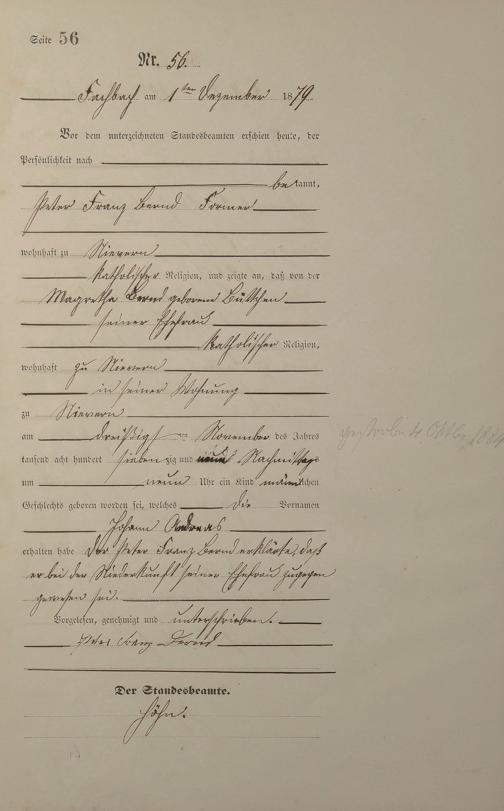 Seite 56
Nr. 56.
Fachbach am 1ten Dezember 1879
Vor dem unterzeichneten Standesbeamten erschien heute, der
Persönlichkeit nach
bekannt,
Peter Franz Bernd Former
wohnhaft zu Nievern
katholischer Religion, und zeigte an, daß von der
Magretha Bernd geborene Büttchen
seiner Ehefrau
katholischer Religion,
wohnhaft zu Nievern
in seiner Wohnung
zu Nievern
am dreißigsten November des Jahres
tausend acht hundert siebenzig und neun Nachmittags
um neun Uhr ein Kind männlichen
Geschlechts geboren worden sei, welches die Vornamen
Johann Andreas
erhalten habe Der Peter Franz Bernd erklärte, daß
er bei der Niederkunft seiner Ehefrau zugegen
gewesen sei.
Vorgelesen, genehmigt und unterschrieben.
Peter Franz Bernd
Der Standesbeamte.
Höhn.
gestorben 4 Oktbr.